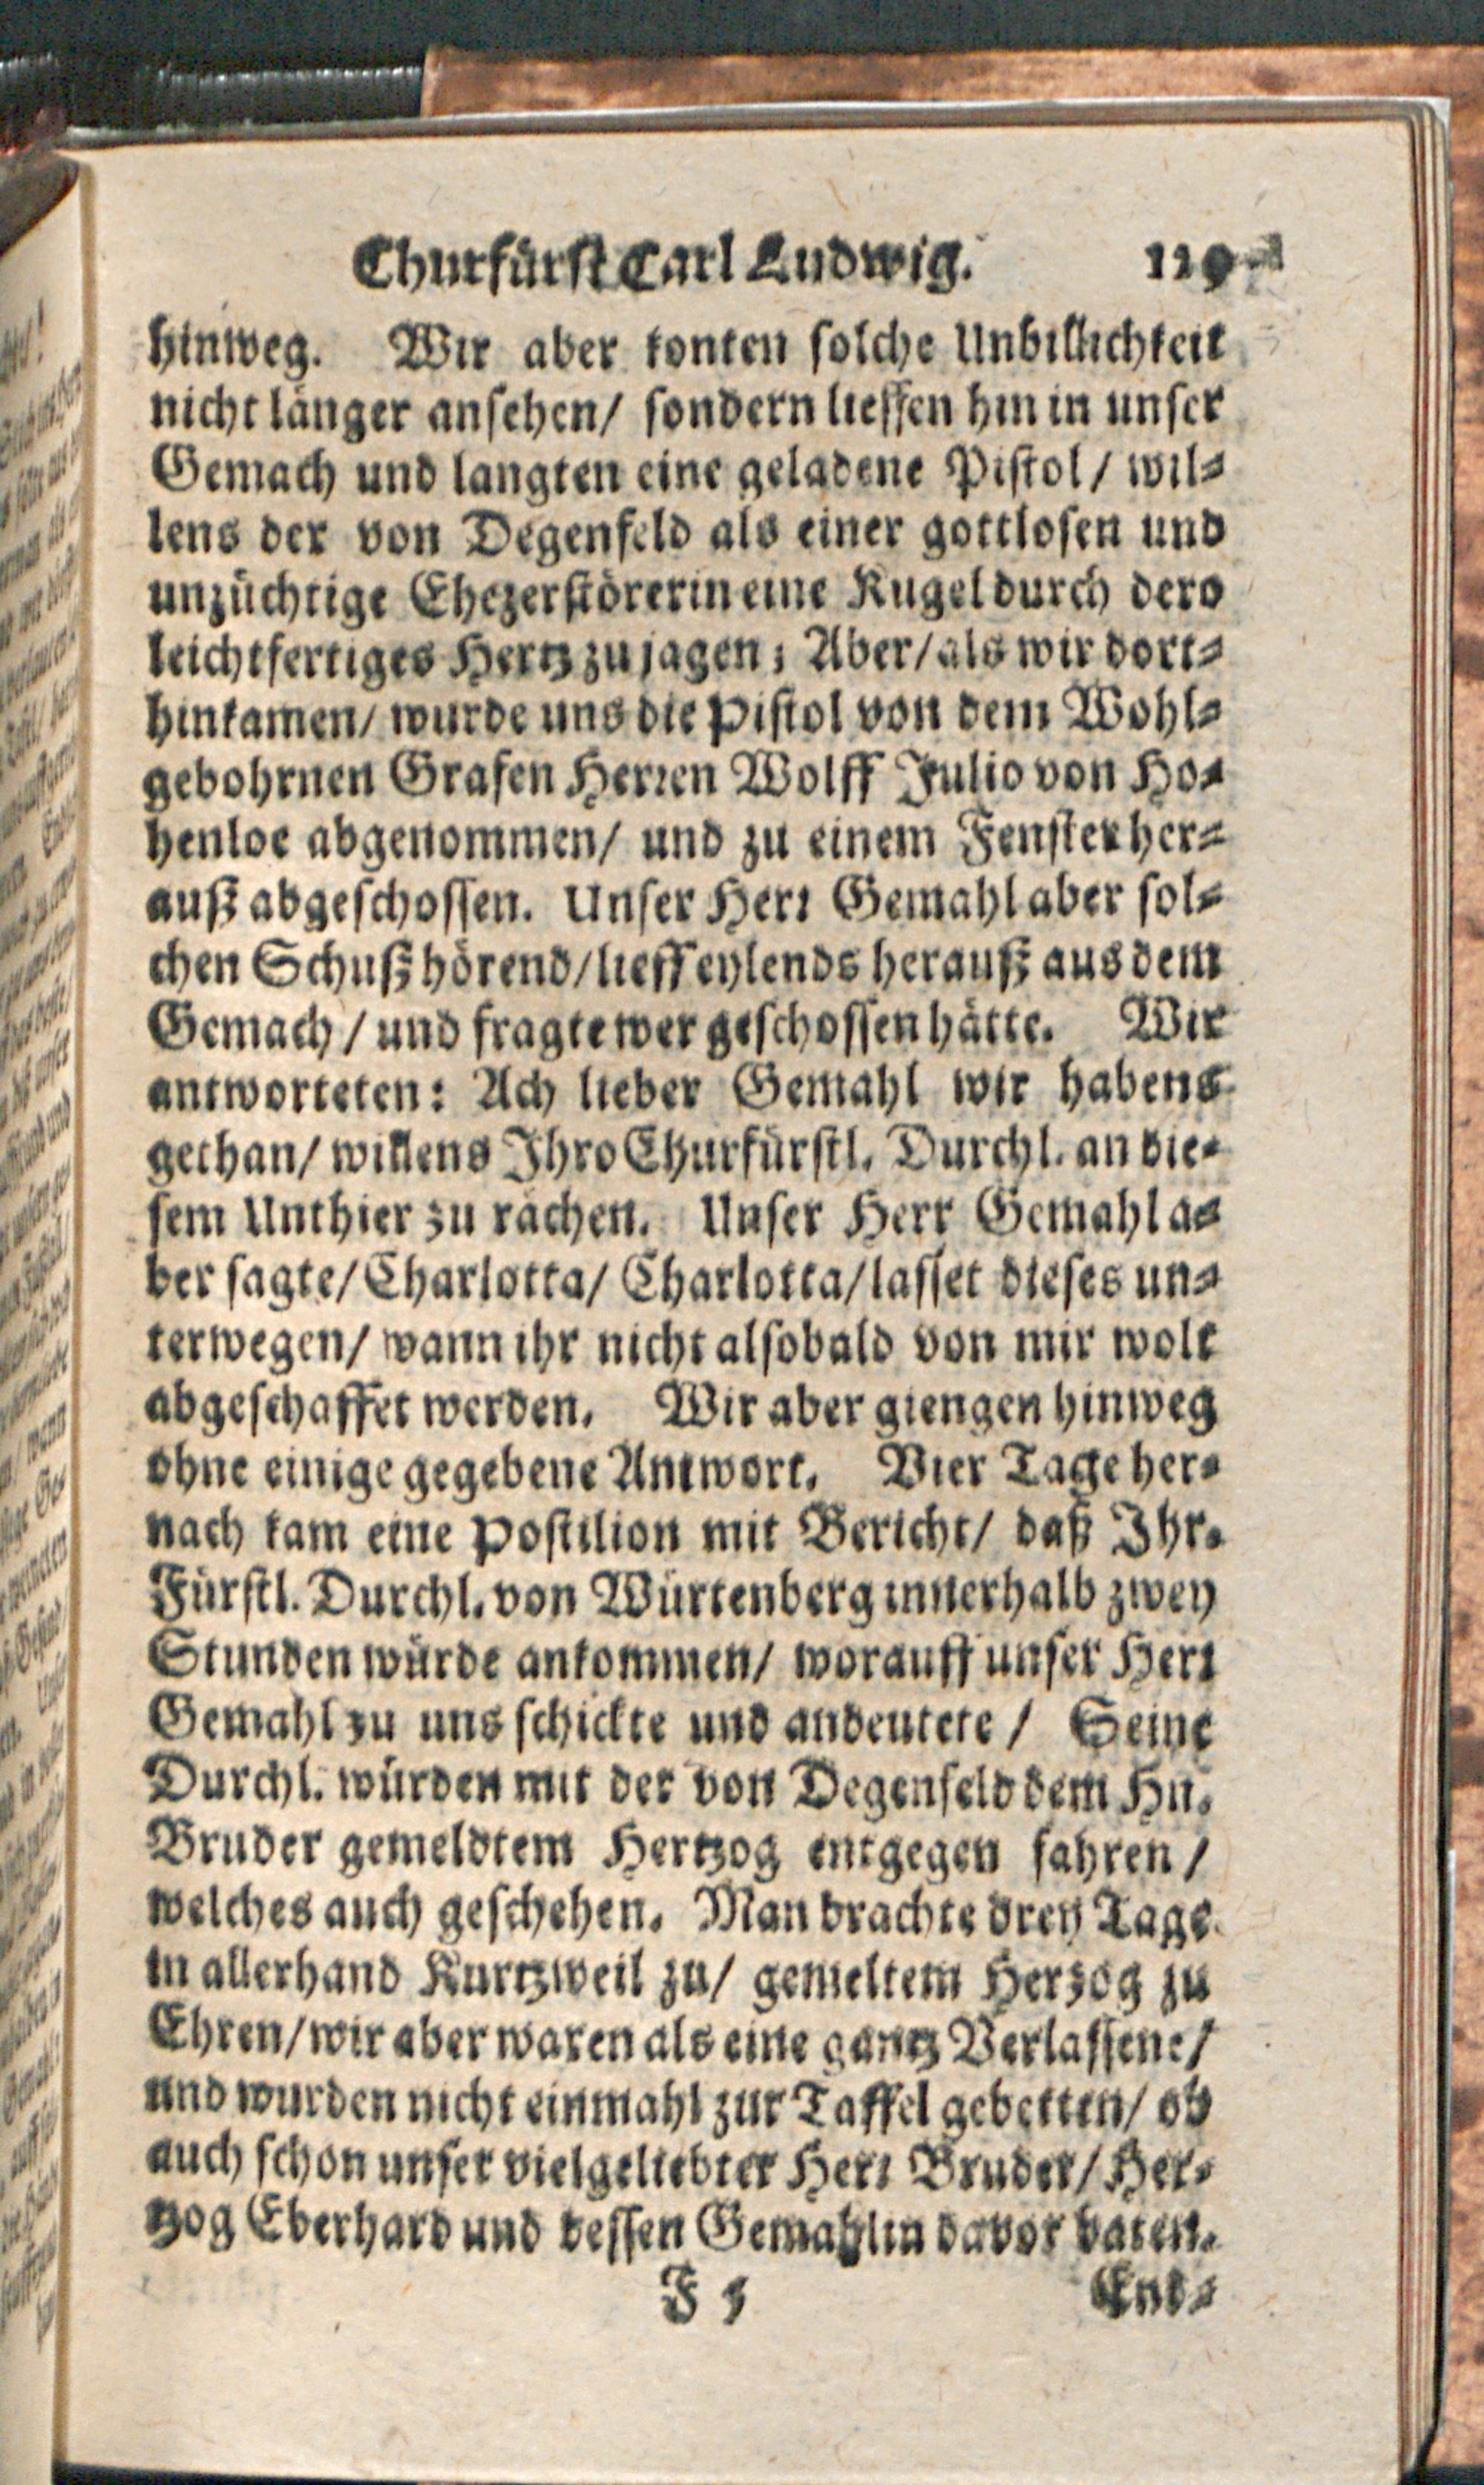 Churfürst Carl Ludwig. 129
hinweg. Wir aber konten solche Unbillichkeit
nicht länger ansehen/ sondern lieffen hin in unser
Gemach und langten eine geladene Pistol/ wil-
lens der von Degenfeld als einer gottlosen und
unzüchtige Ehezerstörerin eine Kugel durch dero
leichtfertiges Hertz zu jagen; Aber/ als wir dort-
hinkamen/ wurde uns die Pistol von dem Wohl-
gebohrnen Grafen Herren Wolff Julio von Ho-
henloe abgenommen/ und zu einem Fenster her-
auß abgeschossen. Unser Herr Gemahl aber sol-
chen Schuß hörend/ lieff eylends herauß aus dem
Gemach/ und fragte wer geschossen hätte. Wir
antworteten: Ach lieber Gemahl wir habens
gethan/ willens Ihro Churfürstl. Durchl. an die-
sem Unthier zu rächen. Unser Herr Gemahl a-
ber sagte/ Charlotta/ Charlotta/ lasset dieses un-
terwegen/ wann ihr nicht alsobald von mir wolt
abgeschaffet werden. Wir aber giengen hinweg
ohne einige gegebene Antwort. Vier Tage her-
nach kam eine Postilion mit Bericht/ daß Ihr.
Fürstl. Durchl. von Würtenberg innerhalb zwey
Stunden würde ankommen/ worauff unser Herr
Gemahl zu uns schickte und andeutete/ Seine
Durchl. würden mit der von Degenfeld dem Hn.
Bruder gemeldtem Hertzog entgegen fahren/
welches auch geschehen. Man brachte drey Tage
in allerhand Kurtzweil zu/ gemeltem Herzog zu
Ehren/ wir aber waren als eine gantz Verlassene/
und wurden nicht einmahl zur Taffel gebetten/ ob
auch schon unser vielgeliebter Herr Bruder/ Her-
tzog Eberhard und dessen Gemahlin davor baten.
F 5 End-